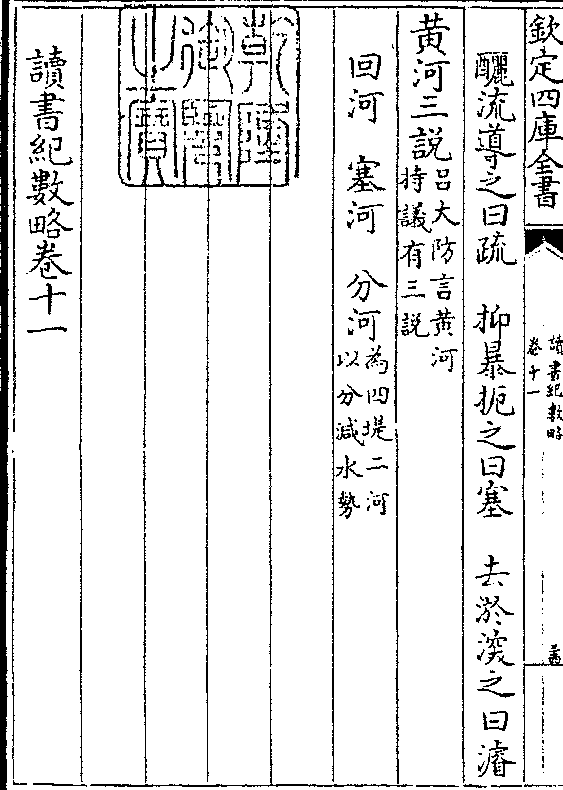 欽定四庫全書
讀書紀數略
卷十一
釃流導之曰疏　抑暴扼之曰塞　去淤濬之曰濬
黄河三說
吕大防言黄河
持議有三說
回河　塞河　分河
為四堤二河
以分減水勢
乾隆御覽之寶
讀書紀數略卷十一